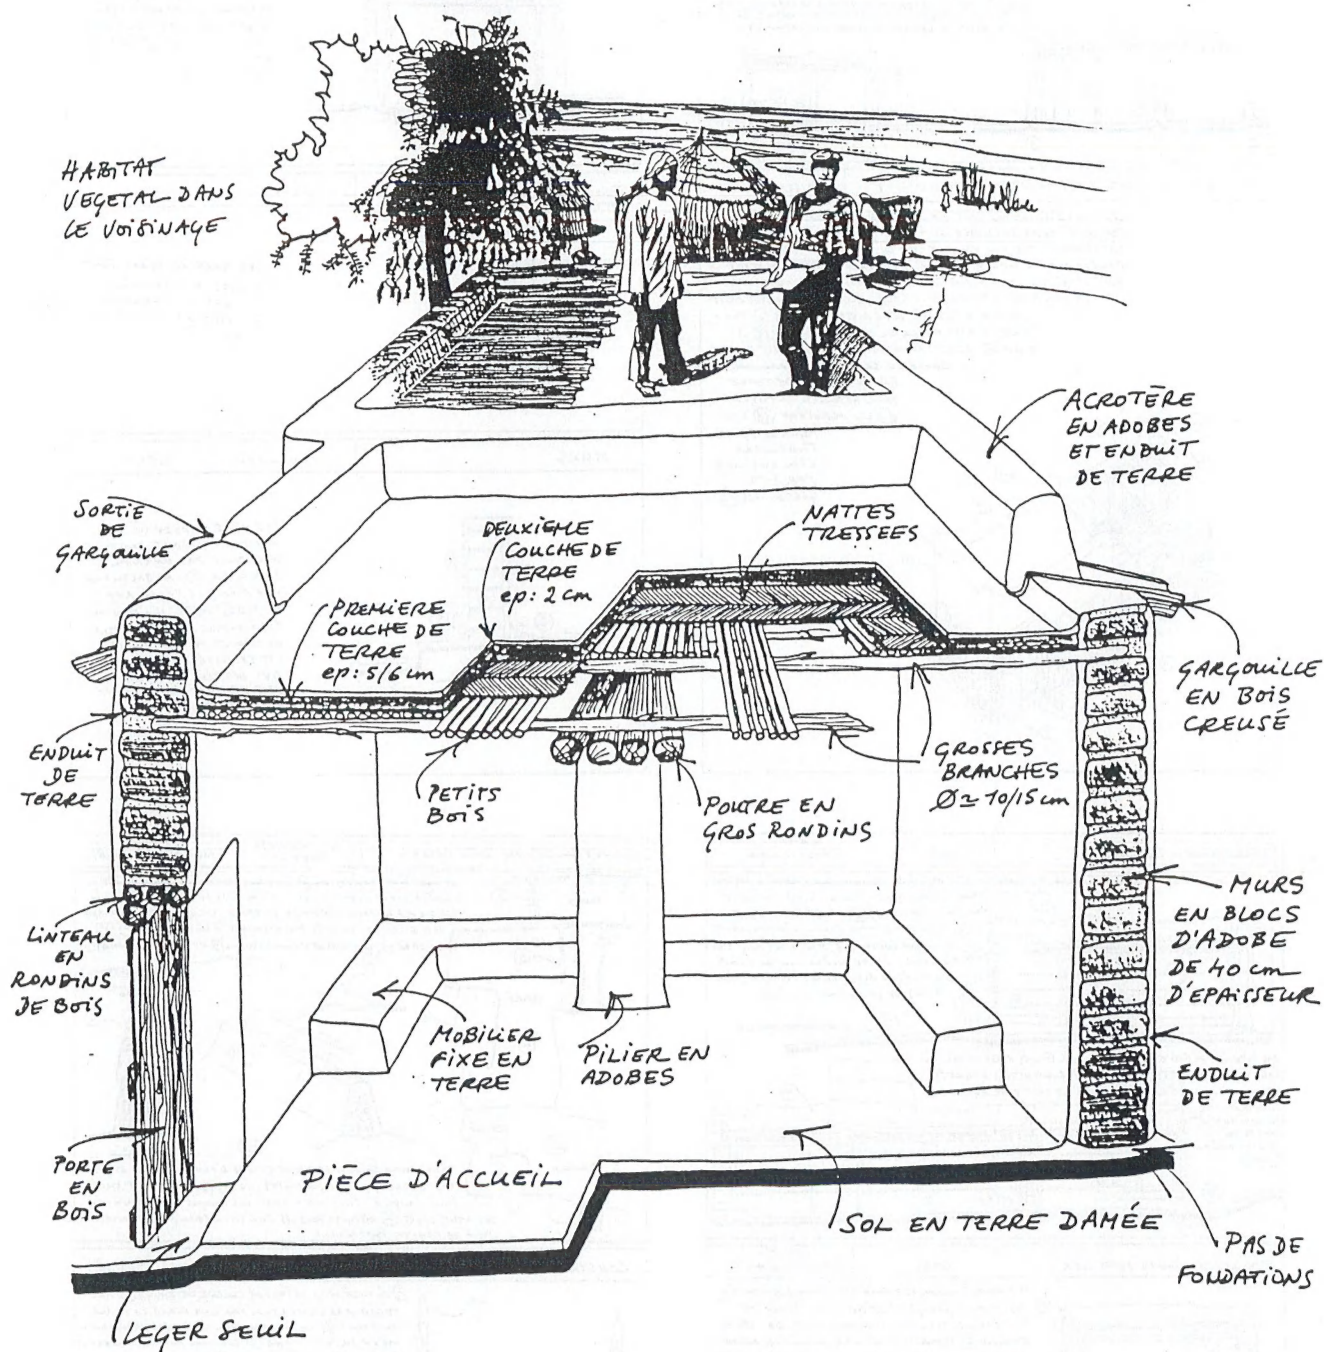 HABITAT
VEGETAL DANS
LE VOISINAGE
ACROTÈRE
EN ADOBES
ET ENDUIT
DE TERRE
SORTIE
DE
GARGOUILLE
DEUXIEME
COUCHE DE
TERRE
ep: 2 cm
NATTES
TRESSEES
PREMIERE
COUCHE DE
TERRE
ep: 5/6 cm
GARGOUILLE
EN BOIS
CREUSÉ
ENDUIT
DE
TERRE
PETITS
BOIS
POUTRE EN
GROS RONDINS
GROSSES
BRANCHES
Ø ≃ 10/15 cm
MURS
EN BLOCS
D'ADOBE
DE 40 cm
D'EPAISSEUR
LINTEAU
EN
RONDINS
DE BOIS
MOBILIER
FIXE EN
TERRE
PILIER EN
ADOBES
ENDUIT
DE TERRE
PORTE
EN
BOIS
PIÈCE D'ACCUEIL
SOL EN TERRE DAMÉE
PAS DE
FONDATIONS
LEGER SEUIL